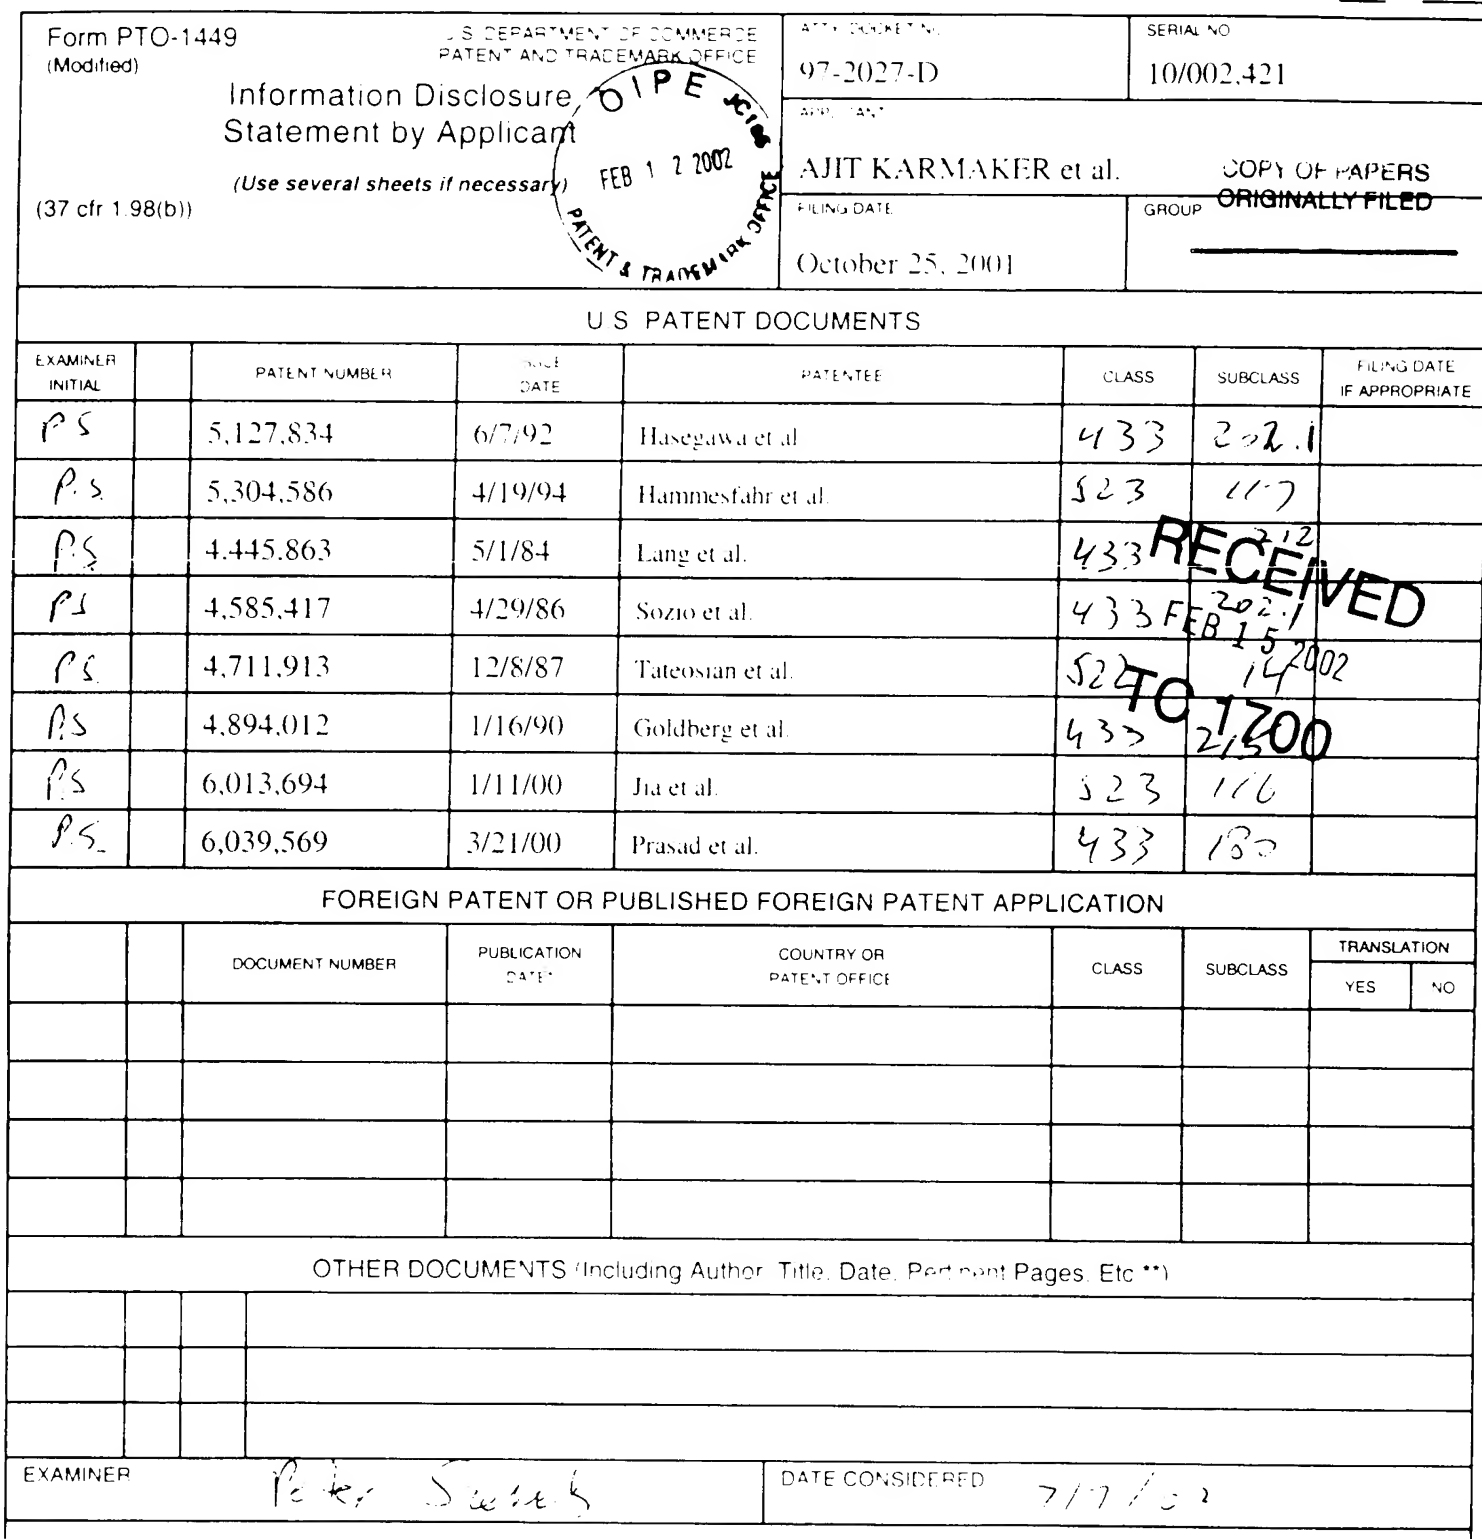 Form PTO-1449
(Modified)
U.S. DEPARTMENT OF COMMERCE
PATENT AND TRADEMARK OFFICE
Information Disclosure
Statement by Applicant
(Use several sheets if necessary)
(37 cfr 1.98(b))
OIPE
FEB 12 2002
PATENT & TRADEMARK OFFICE
ATTY DOCKET NO.
97-2027-D
SERIAL NO
10/002,421
APPLICANT
AJIT KARMAKER et al.
COPY OF PAPERS
ORIGINALLY FILED
FILING DATE
October 25, 2001
GROUP
U S PATENT DOCUMENTS
EXAMINER INITIAL PATENT NUMBER ISSUE DATE PATENTEE CLASS SUBCLASS FILING DATE IF APPROPRIATE
PS 5,127,834 6/7/92 Hasegawa et al 433 202.1
P.S. 5,304,586 4/19/94 Hammesfahr et al. 523 117
P.S 4,445,863 5/1/84 Lang et al. 433 212
PS 4,585,417 4/29/86 Sozio et al. 433 202.1
PS 4,711,913 12/8/87 Tateosian et al. 522 14
P.S 4,894,012 1/16/90 Goldberg et al. 433 215
P.S 6,013,694 1/11/00 Jia et al. 523 116
P.S. 6,039,569 3/21/00 Prasad et al. 433 180
RECEIVED
FEB 15 2002
TC 1700
FOREIGN PATENT OR PUBLISHED FOREIGN PATENT APPLICATION
DOCUMENT NUMBER PUBLICATION DATE* COUNTRY OR PATENT OFFICE CLASS SUBCLASS TRANSLATION YES NO
OTHER DOCUMENTS (Including Author, Title, Date, Pertinent Pages, Etc **)
EXAMINER Peter
DATE CONSIDERED 7/7/02